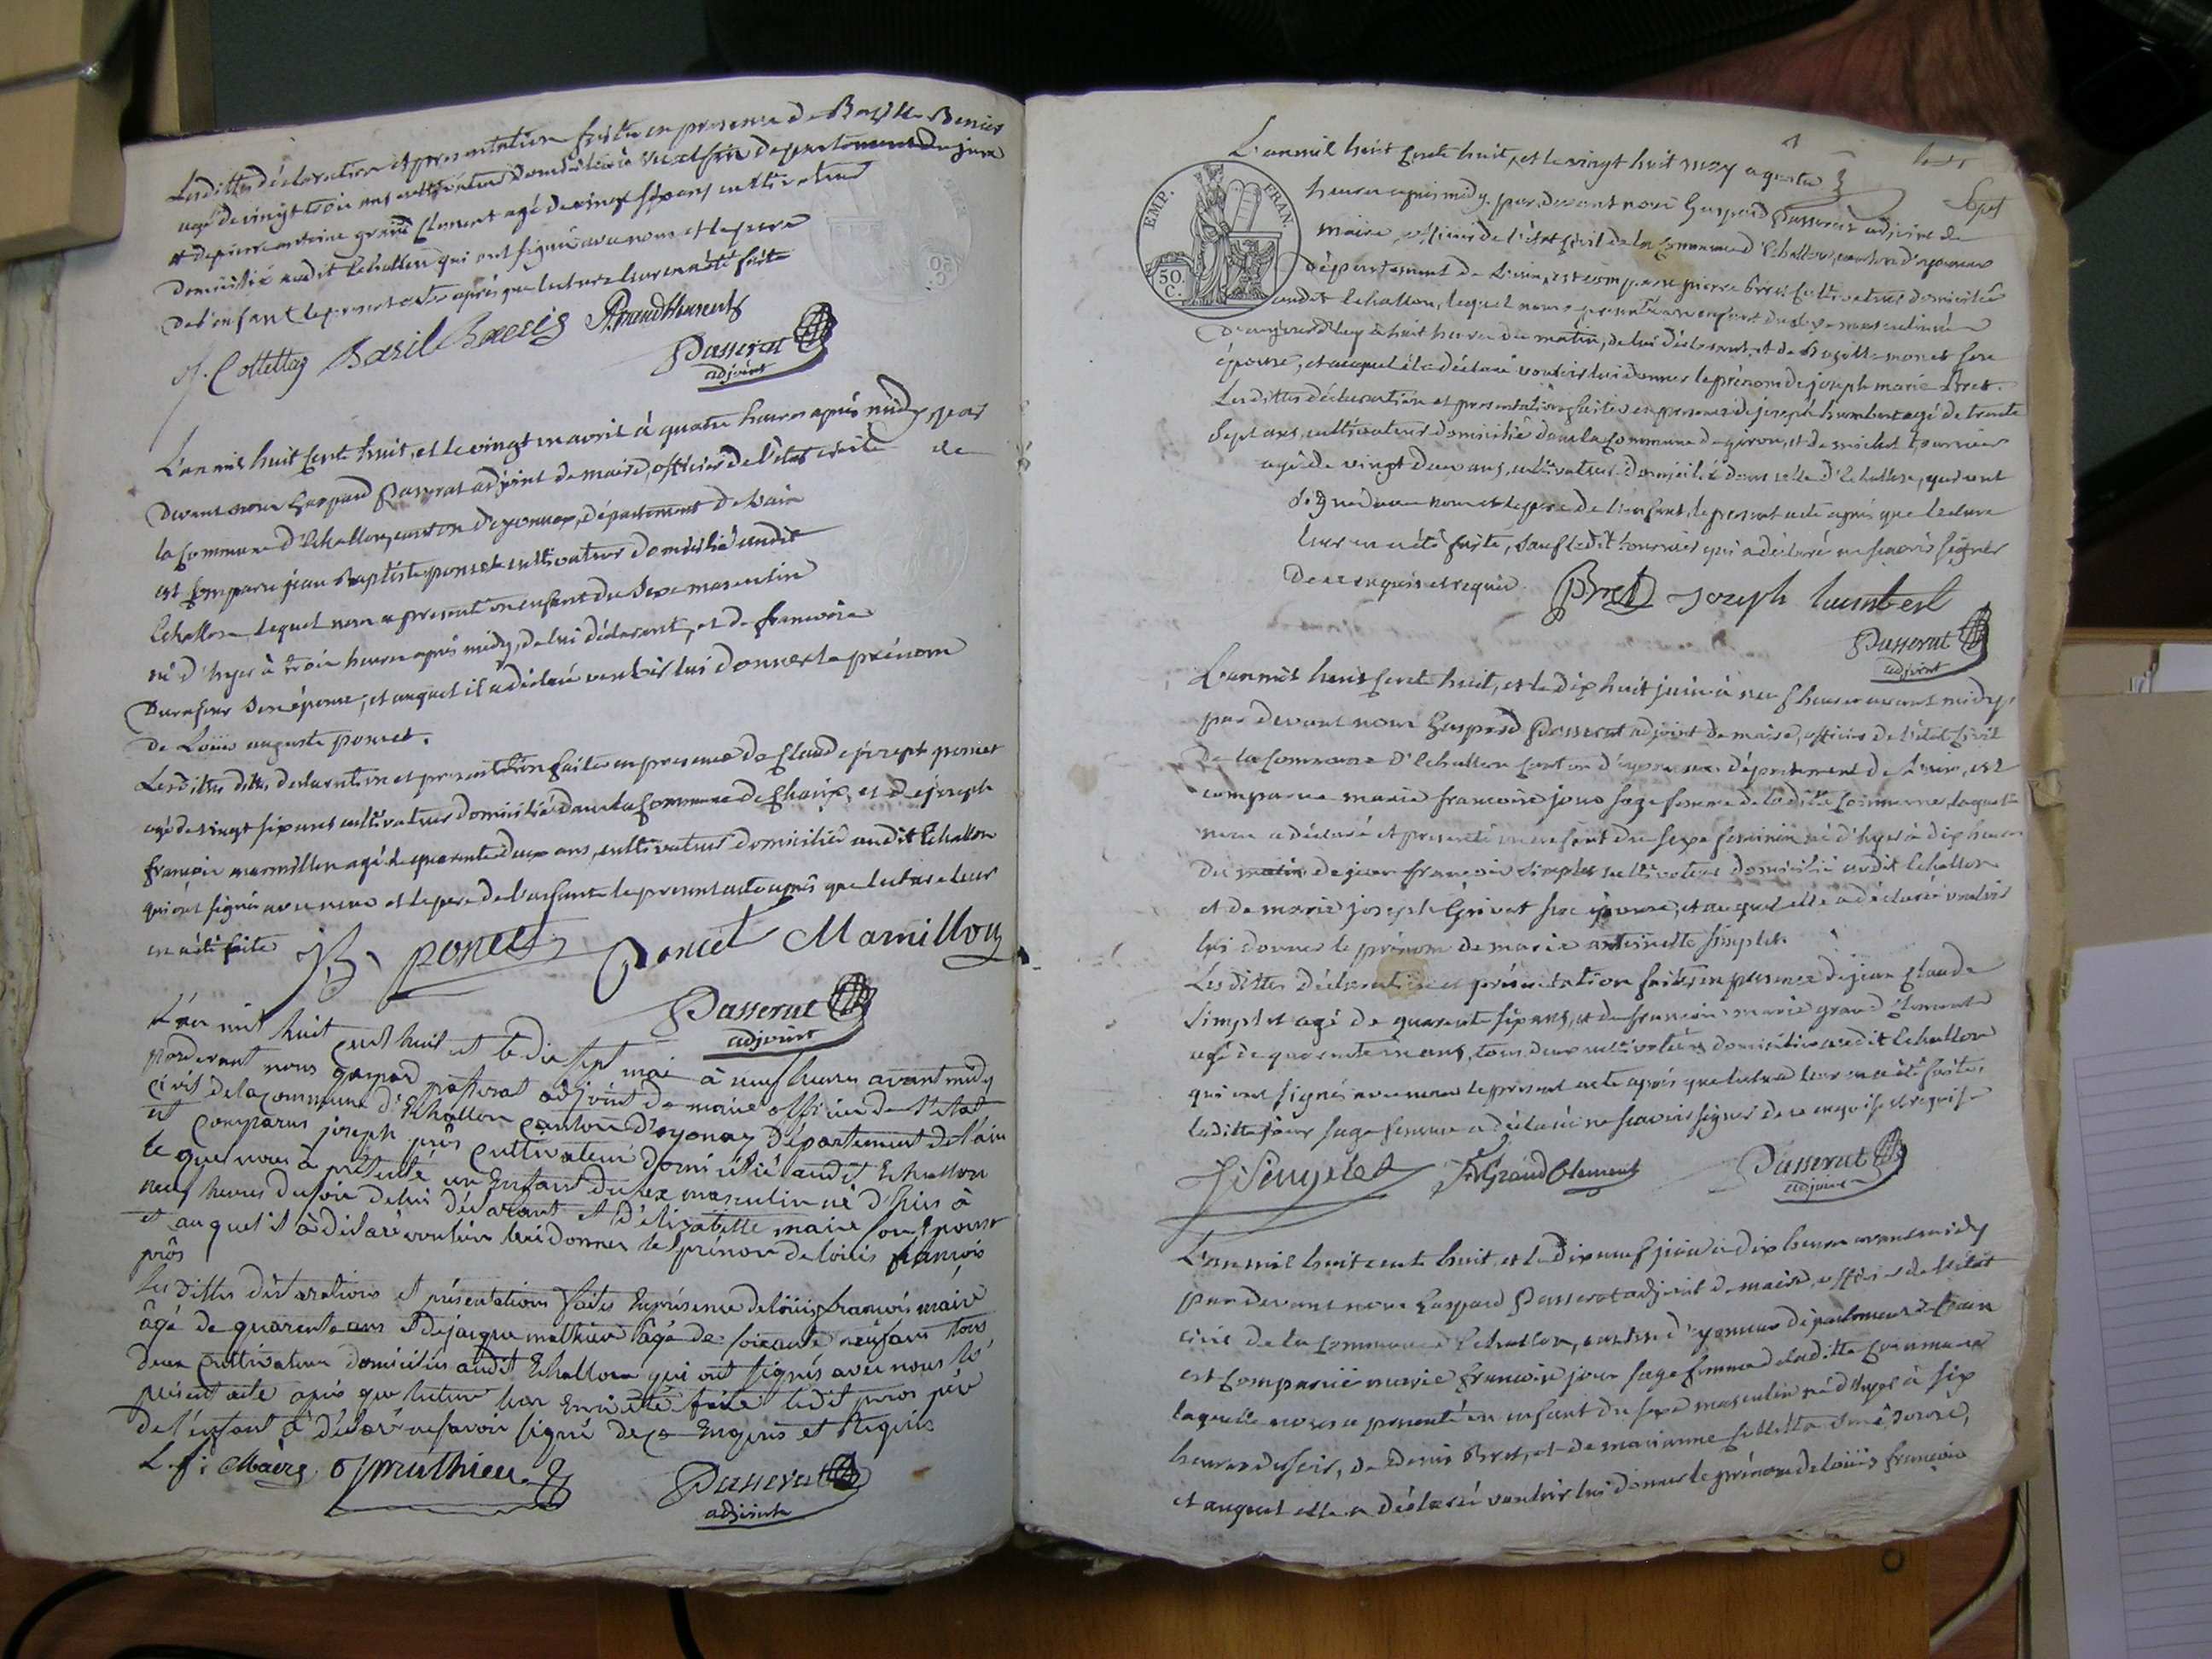 Lesdittes déclaration et presentation faite en presence de Basile Benier
agé de vingt trois ans cultivateur domicilié à departement du jura
et de pierre antoine grand Clement agé de vingt six ans cultivateur
domicilié audit Echallon qui ont signé avec nous et le pere
de l'enfant le present acte après que lecture leur en a été faite
J. Collettaz Basil P. grand Clement
Passerat
adjoint
L'an mil huit cent huit, et le vingt un avril à quatre heures après midy, par
devant nous Gaspard Passerat adjoint de maire, officier de l'état civile de
la commune d'Echallon, canton d'oyonnax, département de l'ain
est comparu jean Baptiste poncet cultivateur domicilié audit
Echallon lequel nous a presenté un enfant du sexe masculin
né d'hyer à trois heures après midy, de lui déclarant, et de francoise
son épouse, et auquel il a déclaré vouloir lui donner le prénom
de Loüis auguste poncet.
Lesdittes dittes declaration et presentation faite en presence de Claude joseph poncet
agé de vingt six ans cultivateur domicilié dans la commune de, et de joseph
françois marmillon agé de quarante deux ans, cultivateur domicilié audit Echallon
qui ont signé avec nous et le pere de l'enfant le present acte après que lecture leur
en a été faite JB poncet Poncet Marmillon
Passerat
adjoint
L'an mil huit cent huit et le dix sept mai à neuf heures avant midy
pardevant nous gaspard passerat adjoint de maire officier de l'etat
civil de la commune d'Echallon canton d'oyonax département de l'ain
est comparus joseph prôs cultivateur domicilié audit Echallon
lequel nous à présenté un Enfant du sex masculin né d'hier à
neuf heures du soir de lui déclarant et d'élisabette maire son Epouse
et auquel il à déclaré vouloir lui donner le prénom de loüis françois
prôs
Les dittes déclarations et présentations faites En présence de loüis françois maire
âgé de quarente ans et de jacque mathieu âgé de soixante neuf ans tous
deux cultivateur domiciliés audit Echallon qui ont signés avec nous le
présent acte après que lecture leur En a été faite ledit pros pére
de l'enfant à déclaré ne savoir signé de ce Enquis et Requis
L. f. Maire J mathieu
Passerat
adjoint
L'an mil huit cents huit, et le vingt huit may a quatre
heures après midy. par devant nous Gaspard Passerat adjoint de
maire officier de l'état civil de la commune d'Echallon, canton d'oyonnax
département de l'ain, est comparu pierre bret cultivateur domicilié
audit Echallon, lequel nous a presenté un enfant du sexe masculin né
d'aujourd'huy à huit heures du matin, de lui déclarant, et de Basille monet son
épouse, et auquel il a déclaré vouloir lui donner le prénom de joseph marie Bret.
Les dittes déclaration et presentation faites en presence de joseph humbert agé de trente
sept ans, cultivateur domicilié dans la commune de giron, et de michel tournier
agé de vingt deux ans, cultivateur domicilié dans celle d'Echallon, qui ont
signé avec nous et le pere de l'enfant, le present acte après que lecture
leur en a été faite, sauf ledit tournier qui a déclaré ne sçavoir signer
de ce enquis et requis. Bret joseph humbert
Passerat
adjoint
EMP. FRAN.
50. C.
L'an mil huit cent huit, et le dix huit juin à neuf heures avant midy
par devant nous Gaspard Passerat adjoint de maire, officier de l'état civil
de la commune d'Echallon canton d'oyonnax département de l'ain, est
comparue marie francoise joux sage femme de la ditte commune, laquelle
nous a déclaré et presenté un enfant du sexe feminin né d'hyer à dix heures
du matin de jean françois Simplet cultivateur domicilié audit Echallon
et de marie joseph Grivat son épouse, et auquel elle a déclaré vouloir
lui donner le prénom de marie antoinette simplet.
Les dittes déclaration et présentation faites en presence de jean Claude
Simplet agé de quarante six ans, et de françois marie grand Clement
agé de quarante ans, tous deux cultivateurs domiciliés audit Echallon
qui ont signés avec nous le present acte après que lecture leur en a été faite.
laditte joux sage femme a déclaré ne sçavoir signer de ce enquise et requise
J Simplet F M Grand Clement Passerat
adjoint
L'an mil huit cent huit, et le dix neuf juin à dix heures avant midy
par devant nous Gaspard Passerat adjoint de maire, officier de l'état
civil de la commune d'Echallon, canton d'oyonnax département de l'ain
est comparüe marie francoise joux sage femme de laditte commune
laquelle nous a presenté un enfant du sexe masculin né d'hyer à six
heures du soir, de Denis Bret, et de marianne son épouse,
et auquel elle a déclaré vouloir lui donner le prénom de loüis françois